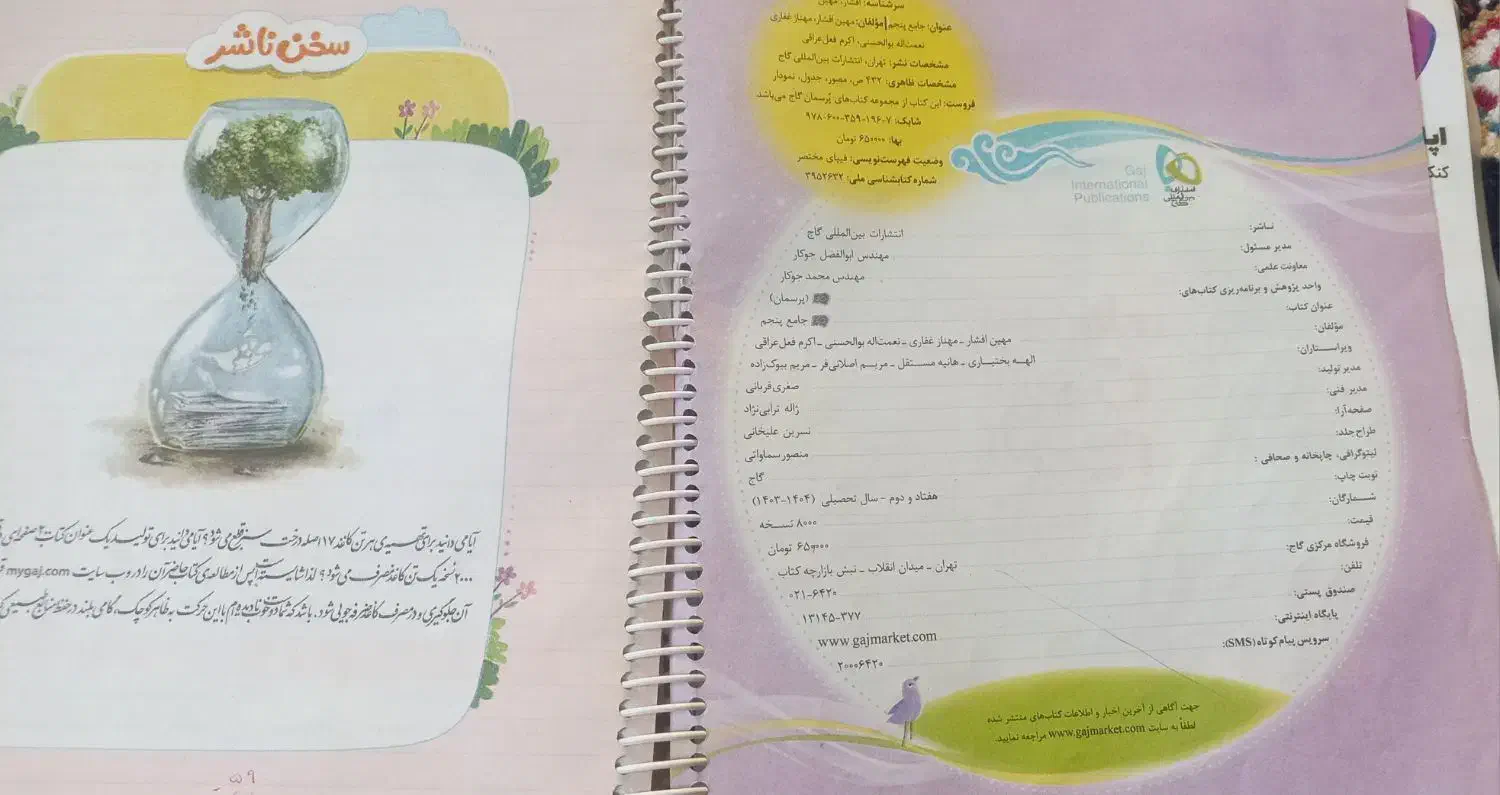 سرشناسه: افشار، مهین
عنوان: جامع پنجم | مؤلفان: مهین افشار، مهناز غفاری
نعمت‌اله بوالحسنی، اکرم فعل‌عراقی
مشخصات نشر: تهران، انتشارات بین‌المللی گاج
مشخصات ظاهری: ۴۳۲ ص، مصور، جدول، نمودار
فروست: این کتاب از مجموعه کتاب‌های پُرسمان گاج می‌باشد.
شابک: ۷-۱۹۶-۳۵۹-۶۰۰-۹۷۸
بها: ۶۵۰۰۰۰ تومان
وضعیت فهرست‌نویسی: فیپای مختصر
شماره کتابشناسی ملی: ۳۹۵۲۶۳۲
Gaj
International
Publications
انتشارات
بین‌المللی
گاج
ناشر: انتشارات بین‌المللی گاج
مدیر مسئول: مهندس ابوالفضل جوکار
معاونت علمی: مهندس محمد جوکار
واحد پژوهش و برنامه‌ریزی کتاب‌های: (پرسمان)
عنوان کتاب: جامع پنجم
مؤلفان: مهین افشار ـ مهناز غفاری ـ نعمت‌اله بوالحسنی ـ اکرم فعل‌عراقی
ویراستاران: الهه بختیاری ـ هانیه مستقل ـ مریم اصلانی‌فر ـ مریم بیوک‌زاده
مدیر تولید: صغری قربانی
مدیر فنی: ژاله ترابی‌نژاد
صفحه‌آرا: نسرین علیخانی
طراح جلد: منصور سماواتی
لیتوگرافی، چاپخانه و صحافی : گاج
نوبت چاپ: هفتاد و دوم - سال تحصیلی (۱۴۰۴-۱۴۰۳)
شمارگان: ۸۰۰۰ نسخه
قیمت: ۶۵۰۰۰۰ تومان
فروشگاه مرکزی گاج: تهران ـ میدان انقلاب ـ نبش بازارچه کتاب
تلفن: ۰۲۱-۶۴۲۰
صندوق پستی: ۱۳۱۴۵-۳۷۷
پایگاه اینترنتی: www.gajmarket.com
سرویس پیام کوتاه (SMS): ۲۰۰۰۶۴۲۰
جهت آگاهی از آخرین اخبار و اطلاعات کتاب‌های منتشر شده
لطفاً به سایت www.gajmarket.com مراجعه نمایید.
سخن ناشر
آیا می‌دانید برای تهیه‌ی هر تن کاغذ ۱۷ اصله درخت سبز قطع می‌شود؟ آیا می‌دانید برای تولید یک عنوان کتاب ۲۰۰ صفحه‌ای
۲۰۰۰ نسخه یک تن کاغذ مصرف می‌شود؟ لذا شایسته است پس از مطالعه‌ی کتاب حاضر آن را در وب سایت mygaj.com
آن جلوگیری و در مصرف کاغذ صرفه‌جویی شود. باشد که شما دوست خوب نادیده‌ام با این حرکت به ظاهر کوچک، گامی بلند در حفظ منابع طبیعی
۵۹